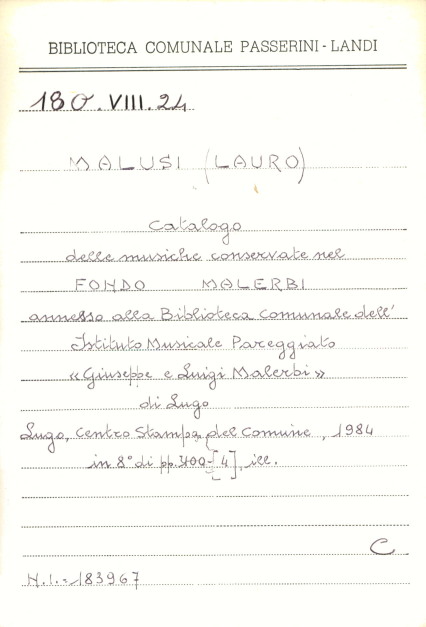 BIBLIOTECA COMUNALE PASSERINI - LANDI
180.VIII.24
MALUSI (LAURO)
Catalogo
delle musiche conservate nel
FONDO MALERBI
annesso alla Biblioteca comunale dell'
Istituto Musicale Pareggiato
«Giuseppe e Luigi Malerbi»
di Lugo
Lugo, Centro Stampa del Comune, 1984
in 8° di pp. 400-[4], ill.
C
N.I.=183967